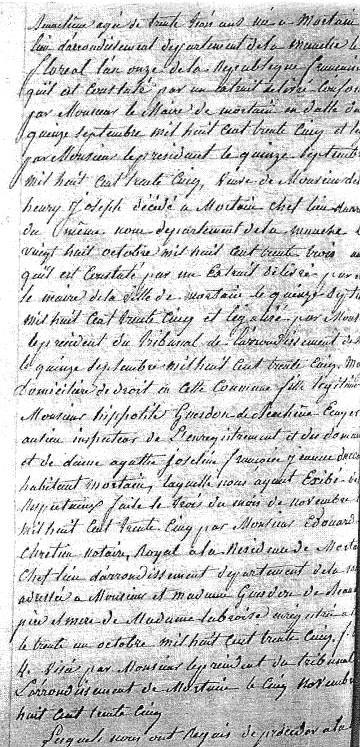 agée de trente trois ans née a Mortain
lieu d'arrondissement departement de la manche le
floreal l'an onze de la Republique francaise
qu'il est constaté par un extrait delivré
par Monsieur le Maire de mortain en datte du
quinze septembre mil huit cent trente cinq et
par Monsieur le president le quinze septembre
mil huit cent trente cinq, veuve de Monsieur
henry Joseph décédé a Mortain chef lieu
du même nom departement de la manche
vingt huit octobre mil huit cent trente trois
qu'il est constaté par un Extrait delivré par
le maire de la ville de mortain le quinze sept
mil huit cent trente cinq et legalisé par Mons
le president du tribunal de l'arrondissement de
le quinze septembre mil huit cent trente cinq,
domiciliée de droit en cette Commune fille legitime
Monsieur hippolite Guesdon de Ecuyer
ancien inspecteur de l'enregistrement et des doma
et de dame agathe Joseline francoise
habitant mortain, laquelle nous ayant Exibé
Respectueux faite le trois du mois de novembre
mil huit cent trente cinq par Monsieur Edouard
Chretien notaire, Royal a la Residence de Morta
Chef lieu d'arrondissement departement de la
adressée a Monsieur et madame Guesdon de
père et mere de Madame enregistré a
le trente un octobre mil huit cent trente cinq, f.
Visé par Monsieur le president du tribunal
L'arrondissement de Mortain le cinq novembre
huit cent trente cinq
Lequel nous ont Requis de procéder a la